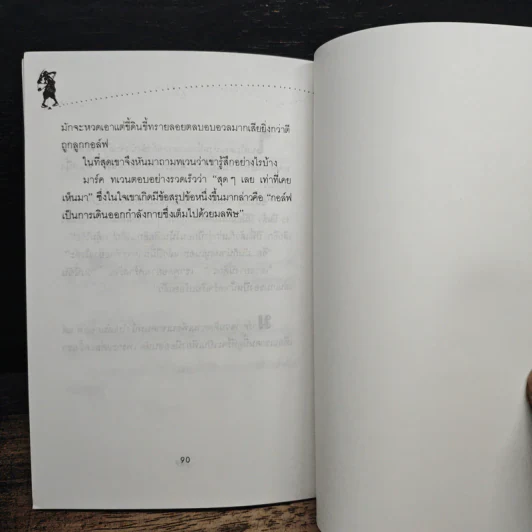 มักจะหวดเอาแต่ขี้ดินขี้ทรายลอยตลบอบอวลมากเสียยิ่งกว่าตี
ถูกลูกกอล์ฟ
ในที่สุดเขาจึงหันมาถามทเวนว่าเขารู้สึกอย่างไรบ้าง
มาร์ค ทเวนตอบอย่างรวดเร็วว่า “สุดๆ เลย เท่าที่เคย
เห็นมา” ซึ่งในใจเขาเกิดมีข้อสรุปข้อหนึ่งขึ้นมากล่าวคือ “กอล์ฟ
เป็นการเดินออกกำลังกายซึ่งเต็มไปด้วยมลพิษ”
90